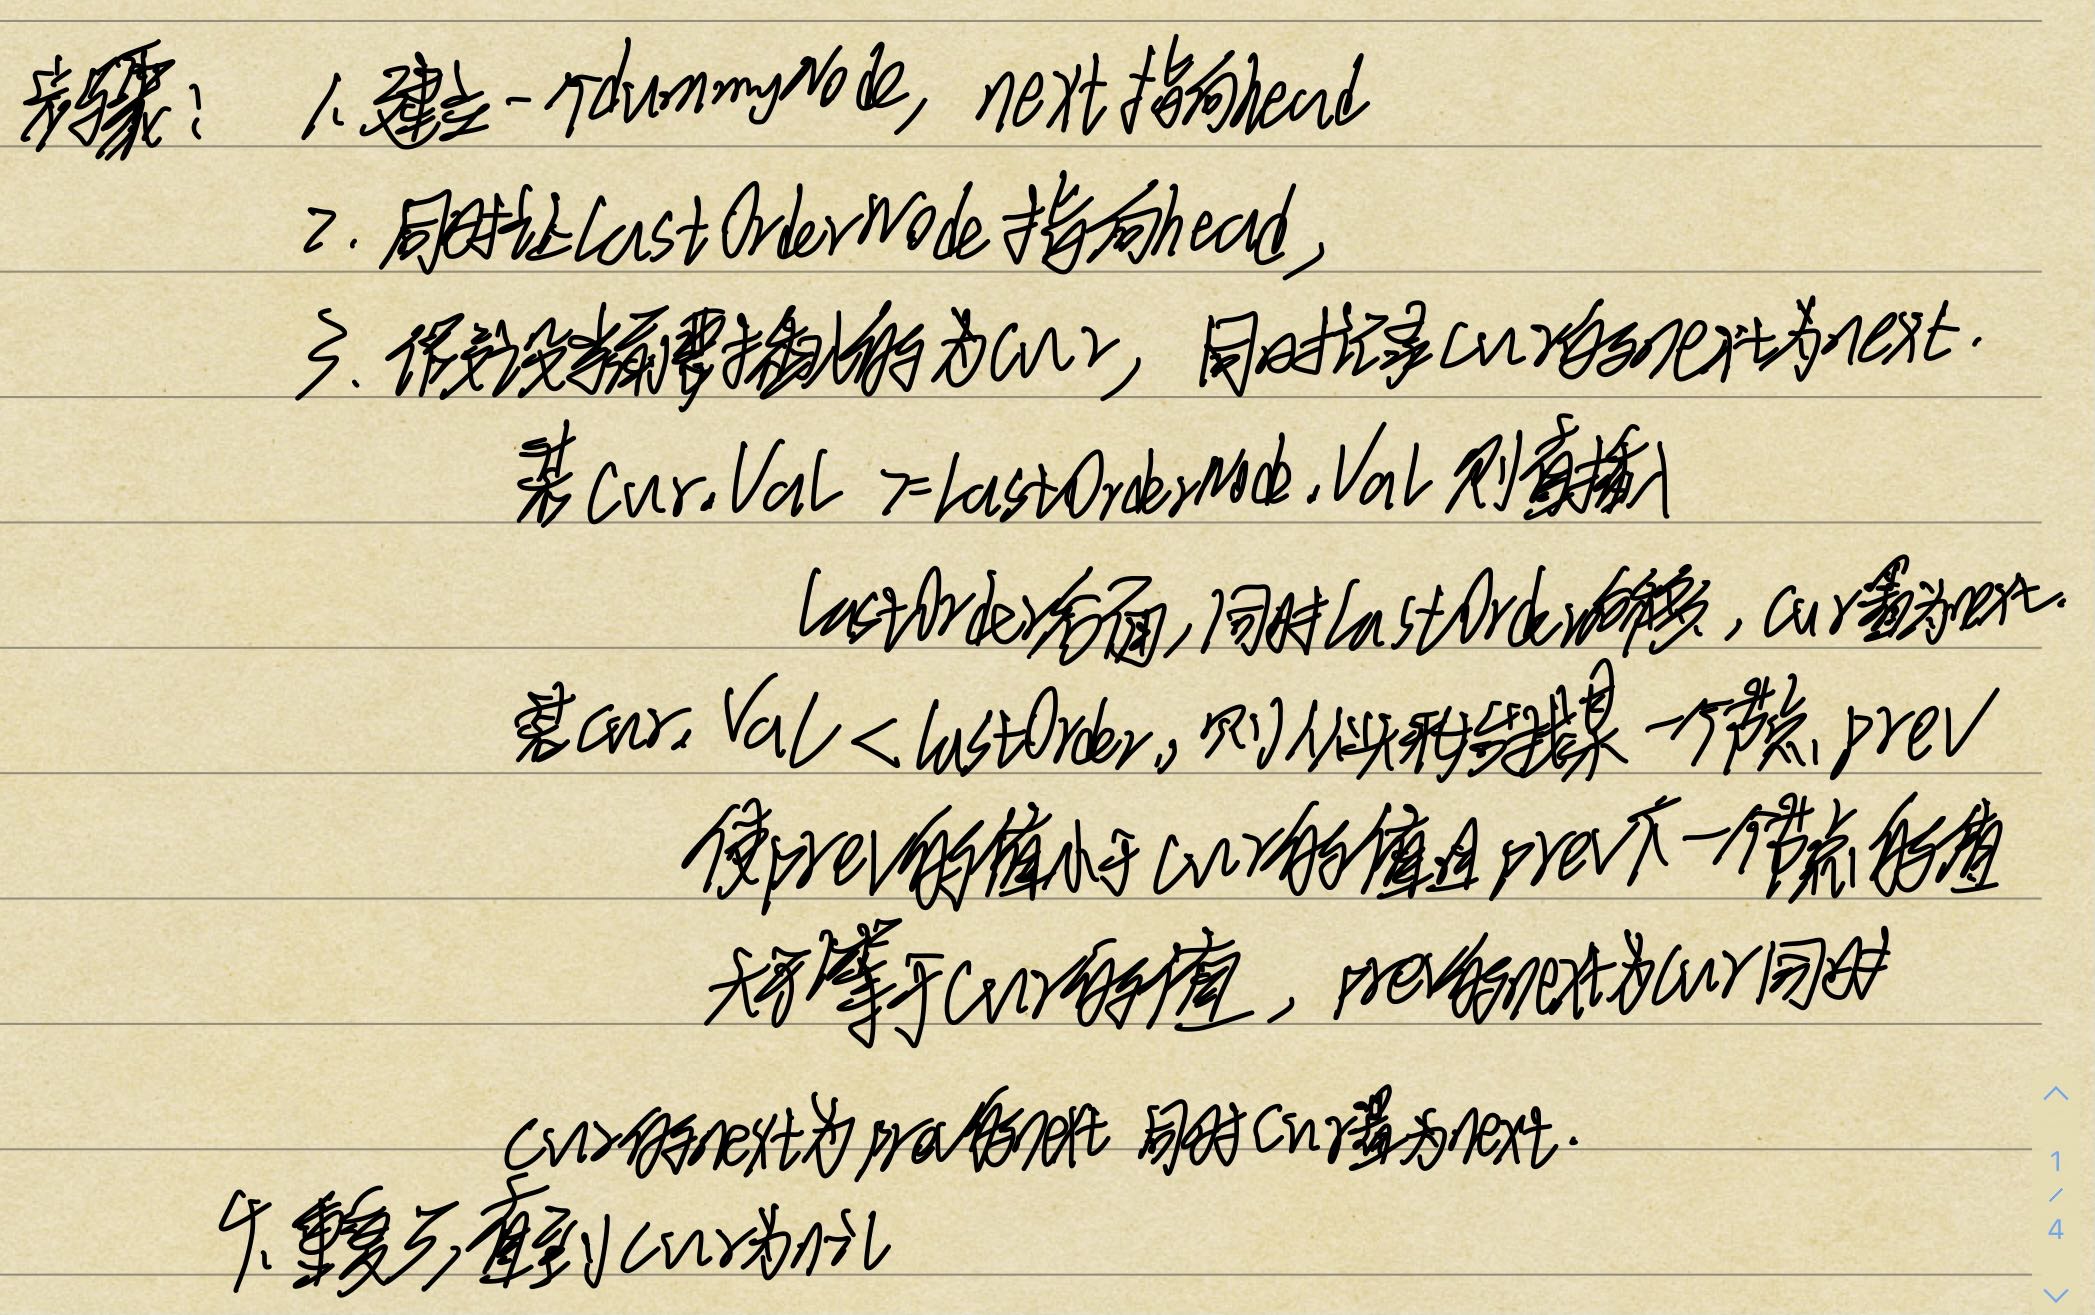 步骤: 1. 建立一个dummyNode, next指向head
2. 同时让lastOrderNode指向head,
3. 假设当前要插入的为cur, 同时记录cur的next为next.
若cur.Val >=lastOrderNode.Val 则直接插入
lastOrder后面, 同时lastOrder后移, cur置为next.
若cur.Val < lastOrder, 则从头开始找某一个节点prev
使prev的值小于cur的值且prev下一个节点的值
大于等于cur的值, prev的next为cur同时
cur的next为prev的next 同时cur置为next.
4. 重复3, 直到cur为nil
1
/
4